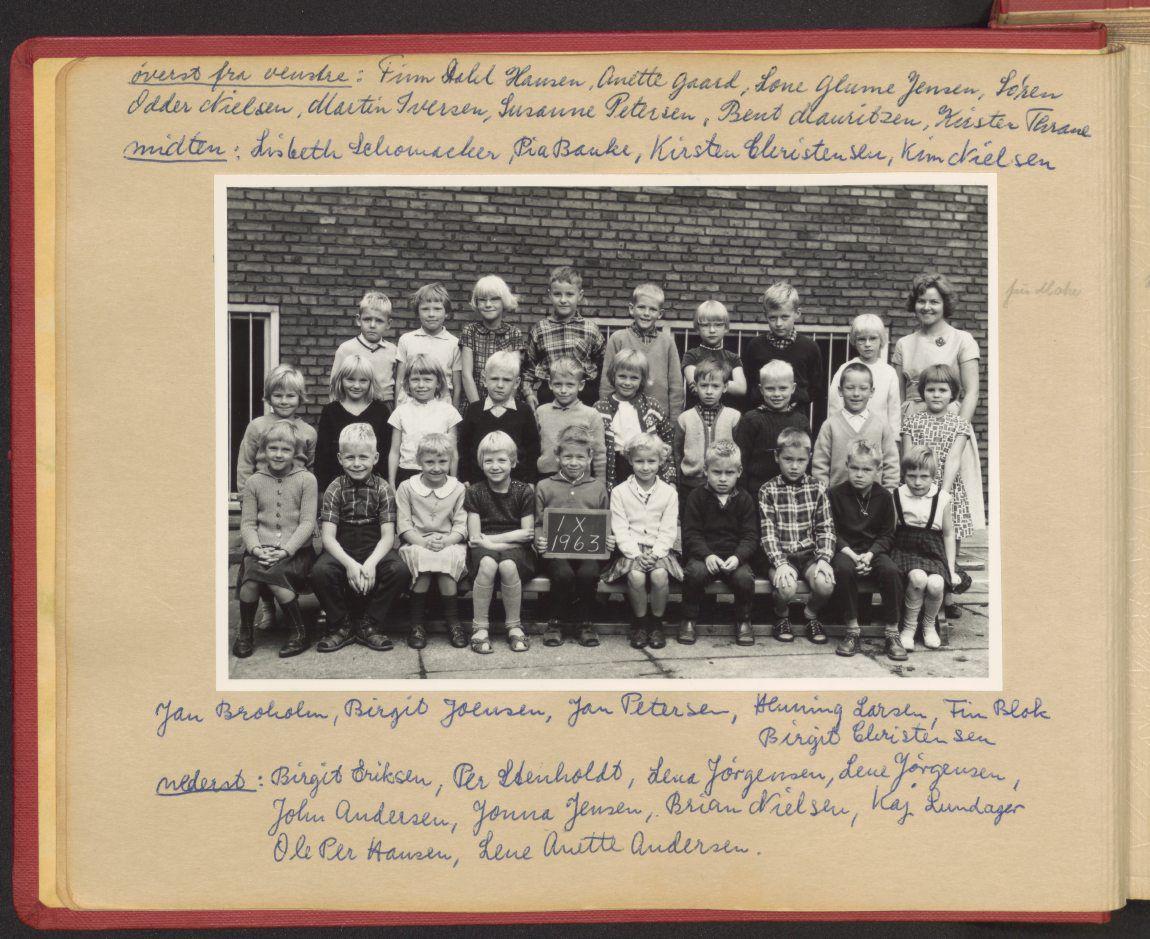 øverst fra venstre: Finn Dahl Hansen, Anette Gaard, Lone Glume Jensen, Søren
Odder Nielsen, Martin Iversen, Susanne Petersen, Bent Mauritzen, Kirsten Thrane
midten: Lisbeth Schomacker, Pia Banke, Kirsten Christensen, Kim Nielsen
1 X
1963
Jan Broholm, Birgit Joensen, Jan Petersen, Henning Larsen, Fin Blok
Birgit Christensen
nederst: Birgit Eriksen, Per Stenholdt, Lena Jørgensen, Lene Jørgensen,
John Andersen, Jonna Jensen, Brian Nielsen, Kaj Lundager
Ole Per Hansen, Lene Anette Andersen.